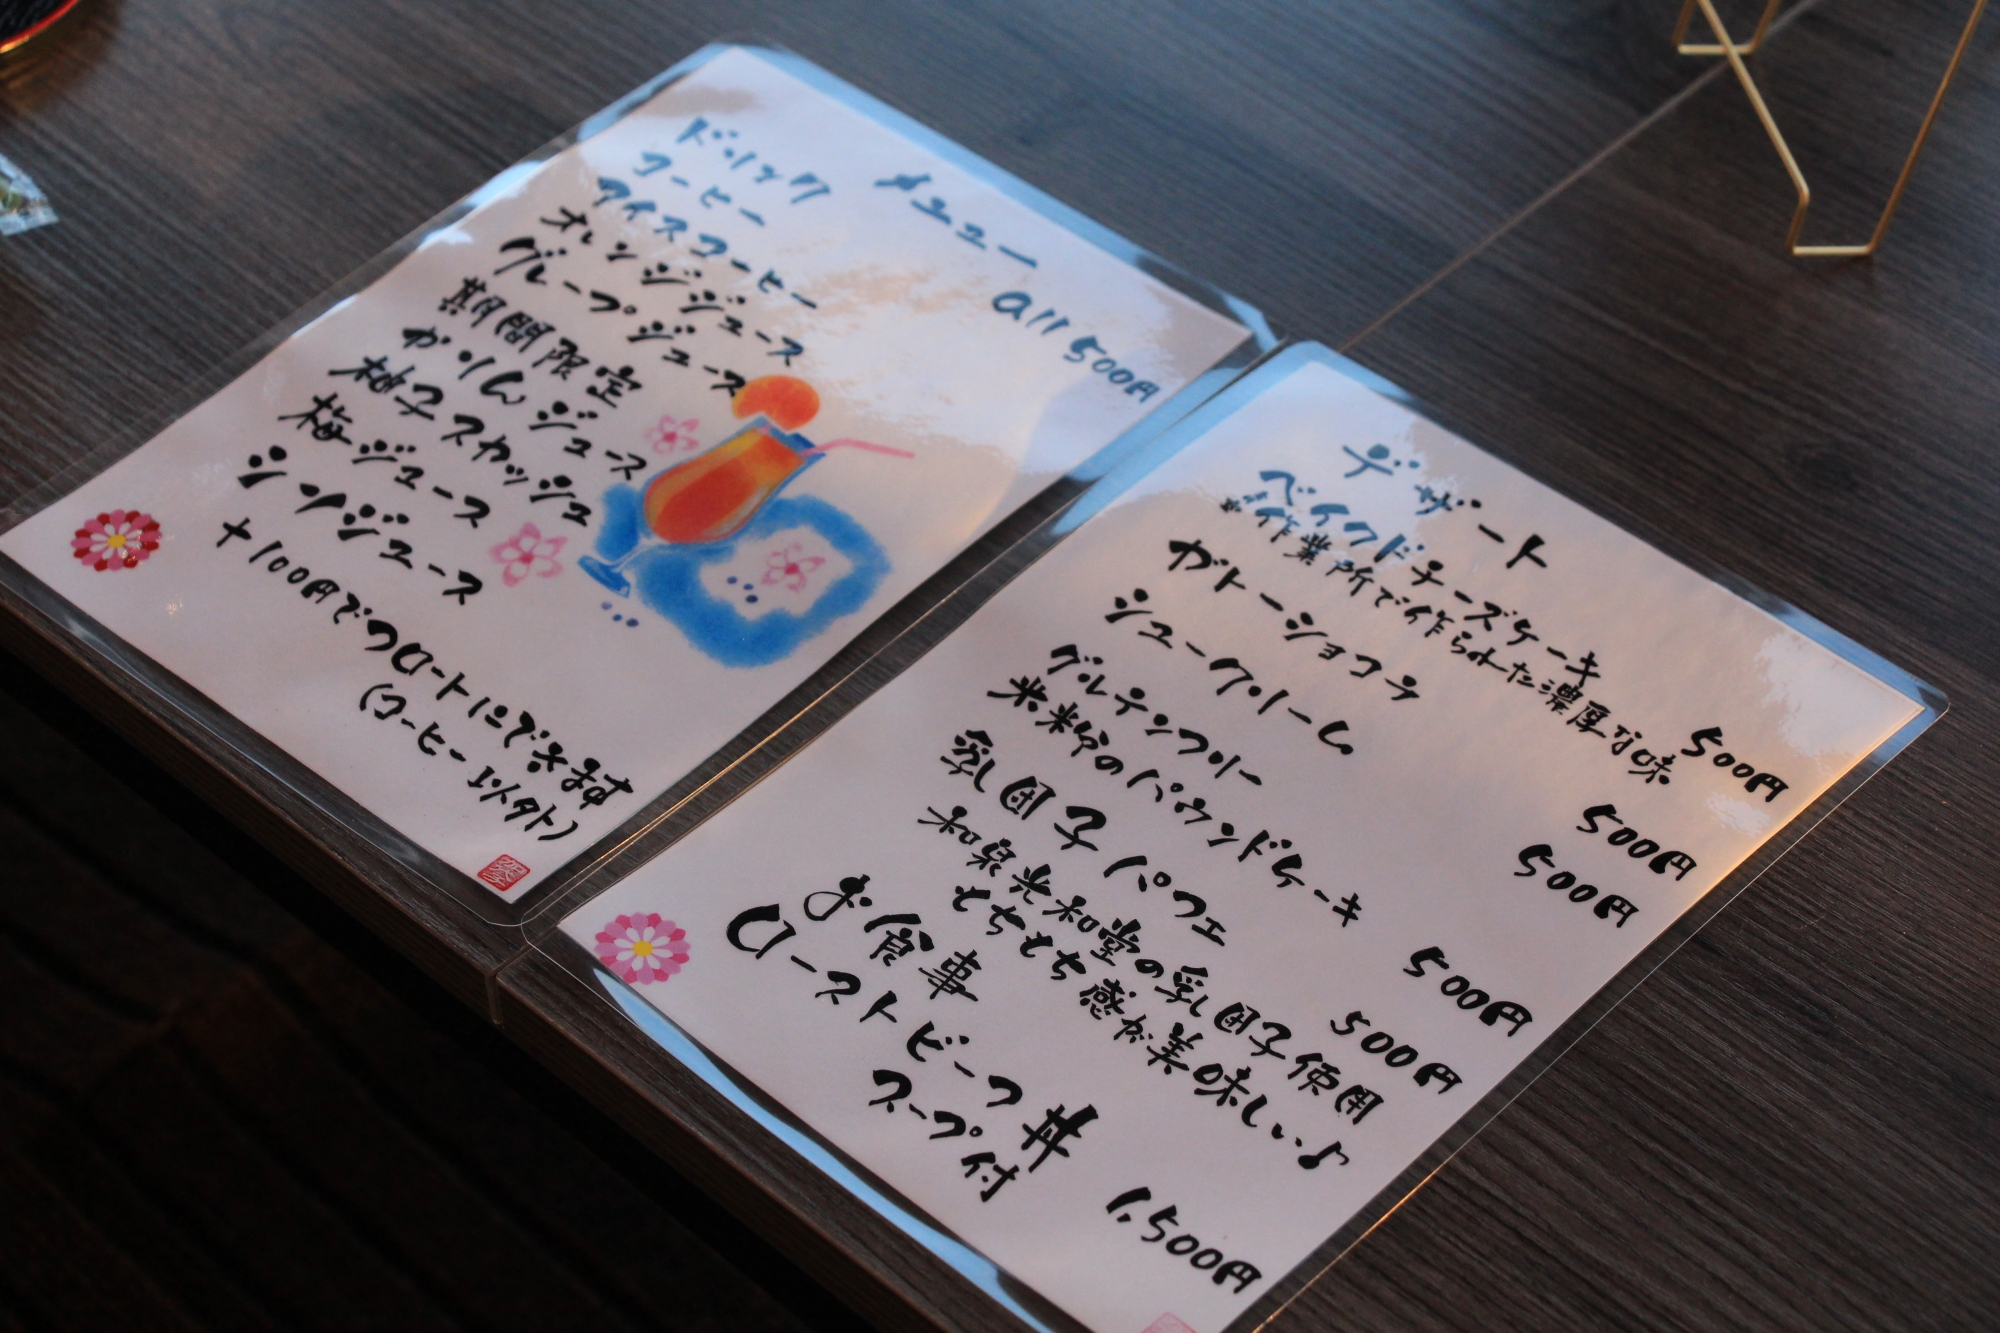 ドリンク メニュー all 500円
コーヒー
アイスコーヒー
オレンジジュース
グレープジュース
期間限定
かりんジュース
柚子スカッシュ
梅ジュース
シソジュース
+100円でフロートにできます
(コーヒー以外)
デザート
ベイクドチーズケーキ 500円
※作業所で作られた濃厚な味
ガトーショコラ 500円
シュークリーム 500円
グルテンフリー
米粉のパウンドケーキ 500円
乳団子パフェ 500円
和泉光和堂の乳団子使用
もちもち感が美味しい♪
お食事
ローストビーフ丼
スープ付 1,500円